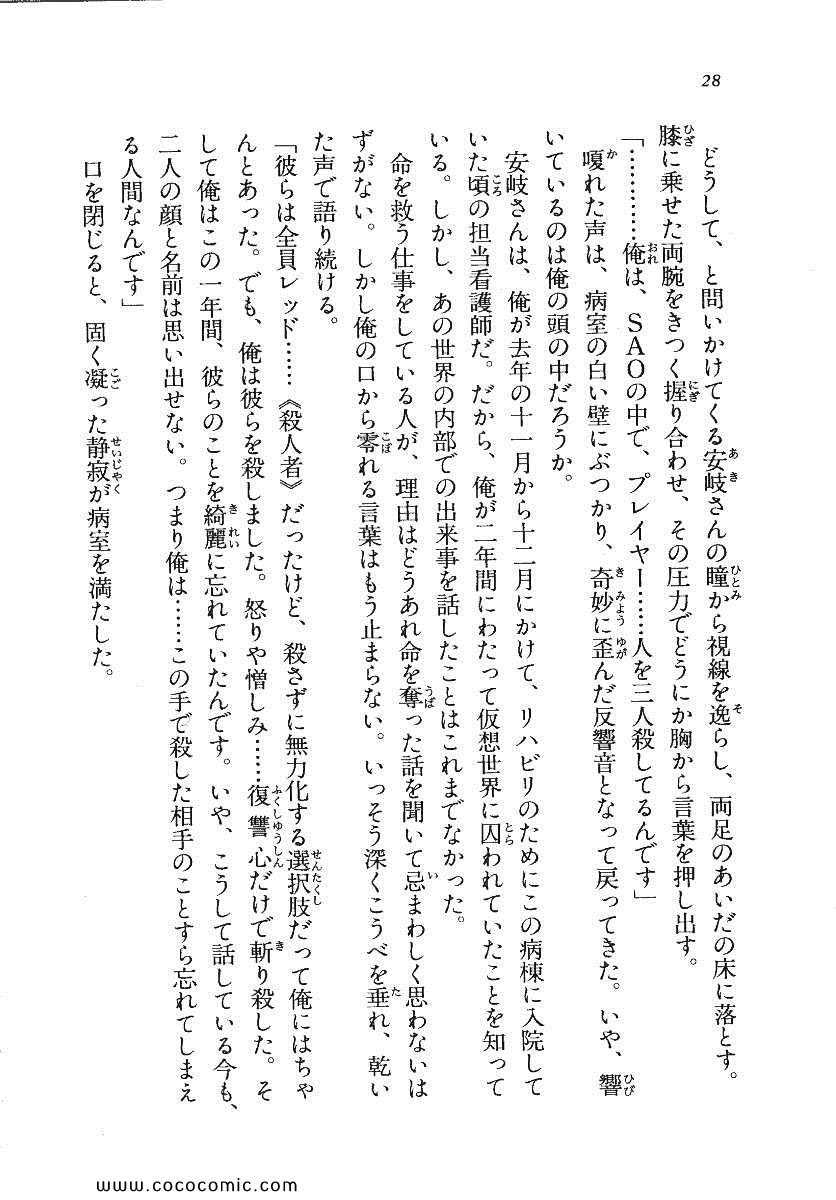 28
どうして、と問いかけてくる安岐さんの瞳から視線を逸らし、両足のあいだの床に落とす。
膝に乗せた両腕をきつく握り合わせ、その圧力でどうにか胸から言葉を押し出す。
「…………俺は、SAOの中で、プレイヤー……人を三人殺してるんです」
嗄れた声は、病室の白い壁にぶつかり、奇妙に歪んだ反響音となって戻ってきた。いや、響
いているのは俺の頭の中だろうか。
安岐さんは、俺が去年の十一月から十二月にかけて、リハビリのためにこの病棟に入院して
いた頃の担当看護師だ。だから、俺が二年間にわたって仮想世界に囚われていたことを知って
いる。しかし、あの世界の内部での出来事を話したことはこれまでなかった。
命を救う仕事をしている人が、理由はどうあれ命を奪った話を聞いて忌まわしく思わないは
ずがない。しかし俺の口から零れる言葉はもう止まらない。いっそう深くこうべを垂れ、乾い
た声で語り続ける。
「彼らは全員レッド……《殺人者》だったけど、殺さずに無力化する選択肢だって俺にはちゃ
んとあった。でも、俺は彼らを殺しました。怒りや憎しみ……復讐心だけで斬り殺した。そ
して俺はこの一年間、彼らのことを綺麗に忘れていたんです。いや、こうして話している今も、
二人の顔と名前は思い出せない。つまり俺は……この手で殺した相手のことすら忘れてしまえ
る人間なんです」
口を閉じると、固く凝った静寂が病室を満たした。
www.cococomic.com